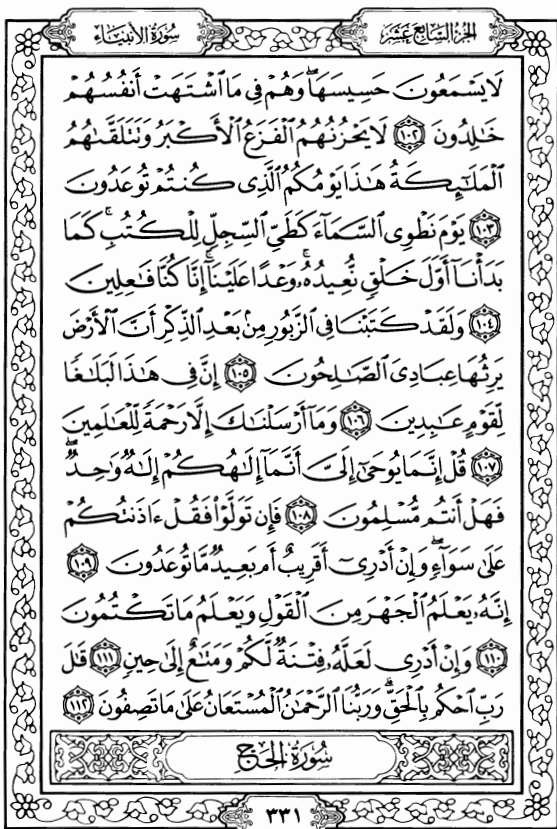 سُورَةُ الأَنبِيَاءِ
الجُزْءُ السَّابِعَ عَشَرَ
لَا يَسْمَعُونَ حَسِيسَهَا ۖ وَهُمْ فِي مَا ٱشْتَهَتْ أَنفُسُهُمْ
خَٰلِدُونَ ١٠٢ لَا يَحْزُنُهُمُ ٱلْفَزَعُ ٱلْأَكْبَرُ وَتَتَلَقَّىٰهُمُ
ٱلْمَلَٰٓئِكَةُ هَٰذَا يَوْمُكُمُ ٱلَّذِى كُنتُمْ تُوعَدُونَ
١٠٣ يَوْمَ نَطْوِى ٱلسَّمَآءَ كَطَىِّ ٱلسِّجِلِّ لِلْكُتُبِ ۚ كَمَا
بَدَأْنَآ أَوَّلَ خَلْقٍ نُّعِيدُهُۥ ۚ وَعْدًا عَلَيْنَآ ۚ إِنَّا كُنَّا فَٰعِلِينَ
١٠٤ وَلَقَدْ كَتَبْنَا فِى ٱلزَّبُورِ مِنۢ بَعْدِ ٱلذِّكْرِ أَنَّ ٱلْأَرْضَ
يَرِثُهَا عِبَادِىَ ٱلصَّٰلِحُونَ ١٠٥ إِنَّ فِى هَٰذَا لَبَلَٰغًا
لِّقَوْمٍ عَٰبِدِينَ ١٠٦ وَمَآ أَرْسَلْنَٰكَ إِلَّا رَحْمَةً لِّلْعَٰلَمِينَ
١٠٧ قُلْ إِنَّمَا يُوحَىٰٓ إِلَىَّ أَنَّمَآ إِلَٰهُكُمْ إِلَٰهٌ وَٰحِدٌ ۖ
فَهَلْ أَنتُم مُّسْلِمُونَ ١٠٨ فَإِن تَوَلَّوْا۟ فَقُلْ ءَاذَنتُكُمْ
عَلَىٰ سَوَآءٍ ۖ وَإِنْ أَدْرِىٓ أَقَرِيبٌ أَم بَعِيدٌ مَّا تُوعَدُونَ ١٠٩
إِنَّهُۥ يَعْلَمُ ٱلْجَهْرَ مِنَ ٱلْقَوْلِ وَيَعْلَمُ مَا تَكْتُمُونَ
١١٠ وَإِنْ أَدْرِى لَعَلَّهُۥ فِتْنَةٌ لَّكُمْ وَمَتَٰعٌ إِلَىٰ حِينٍ ١١١ قَٰلَ
رَبِّ ٱحْكُم بِٱلْحَقِّ ۗ وَرَبُّنَا ٱلرَّحْمَٰنُ ٱلْمُسْتَعَانُ عَلَىٰ مَا تَصِفُونَ ١١٢
سُورَةُ الحَجِّ
٣٣١